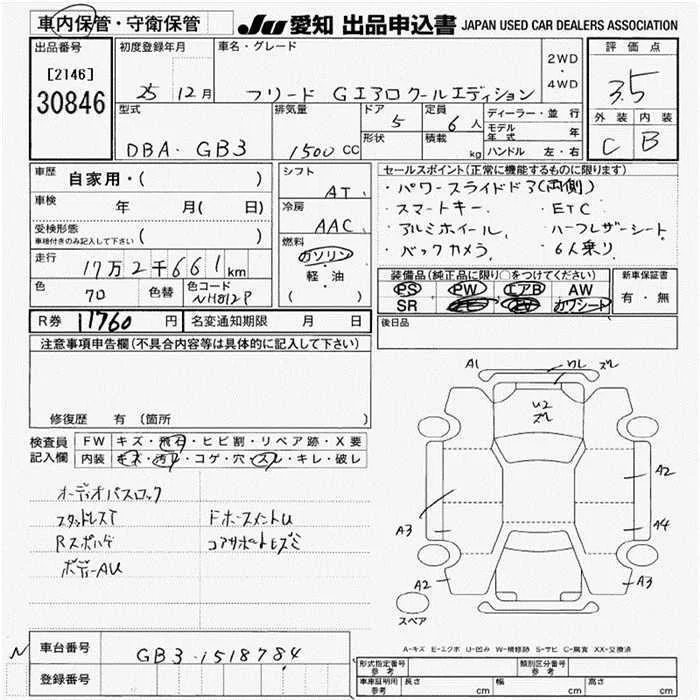 車内保管・守衛保管
JU 愛知 出品申込書 JAPAN USED CAR DEALERS ASSOCIATION
出品番号
[2146]
30846
初度登録年月
25 12月
車名・グレード
フリード GエアロクールエディSション
2WD
・
4WD
評価点
3.5
外装 内装
C B
型式
DBA・GB3
排気量
1500 CC
ドア
5
形状
定員
6人
積載
kg
ディーラー・並行
モデル年式 年
ハンドル 左・右
車歴 自家用・( )
車検 年 月( 日)
受検形態
車検付きのみ記入して下さい ( )
走行 17万2千661km
色 クロ
色替
色コード NH812P
シフト
AT
冷房
AAC
燃料
ガソリン
・
軽・油
( )
セールスポイント(正常に機能するものに限ります)
・パワースライドドア(両側)
・スマートキー ・ETC
・アルミホイール ・ハーフレザーシート
・バックカメラ ・6人乗り
装備品(純正品に限り○をつけてください)
PS PW エアB AW
SR カワシート
新車保証書
有・無
R券 11760円
名変通知期限 月 日
後日品
注意事項申告欄(不具合内容等は具体的に記入して下さい)
修復歴 有(箇所 )
検査員記入欄
FW キズ・飛石・ヒビ割・リペア跡・X要
内装 キズ・汚れ・コゲ・穴・スレ・キレ・破レ
オーディオパスロック
スタッドレスT
Rスポハゲ
ボディーAU
FホースメントU
コアサポートUズミ
A1
ワレ ズレ
U2
ズレ
A2
A3
A4
A2
A3
スペア
A-キズ E-エクボ U-凹み W-補修跡 S-サビ C-腐食 XX-交換済
N
車台番号 GB3-1518784
登録番号
形式指定番号
参考
類別区分番号
参考
車庫証明用
参考
長さ cm
幅 cm
高さ cm